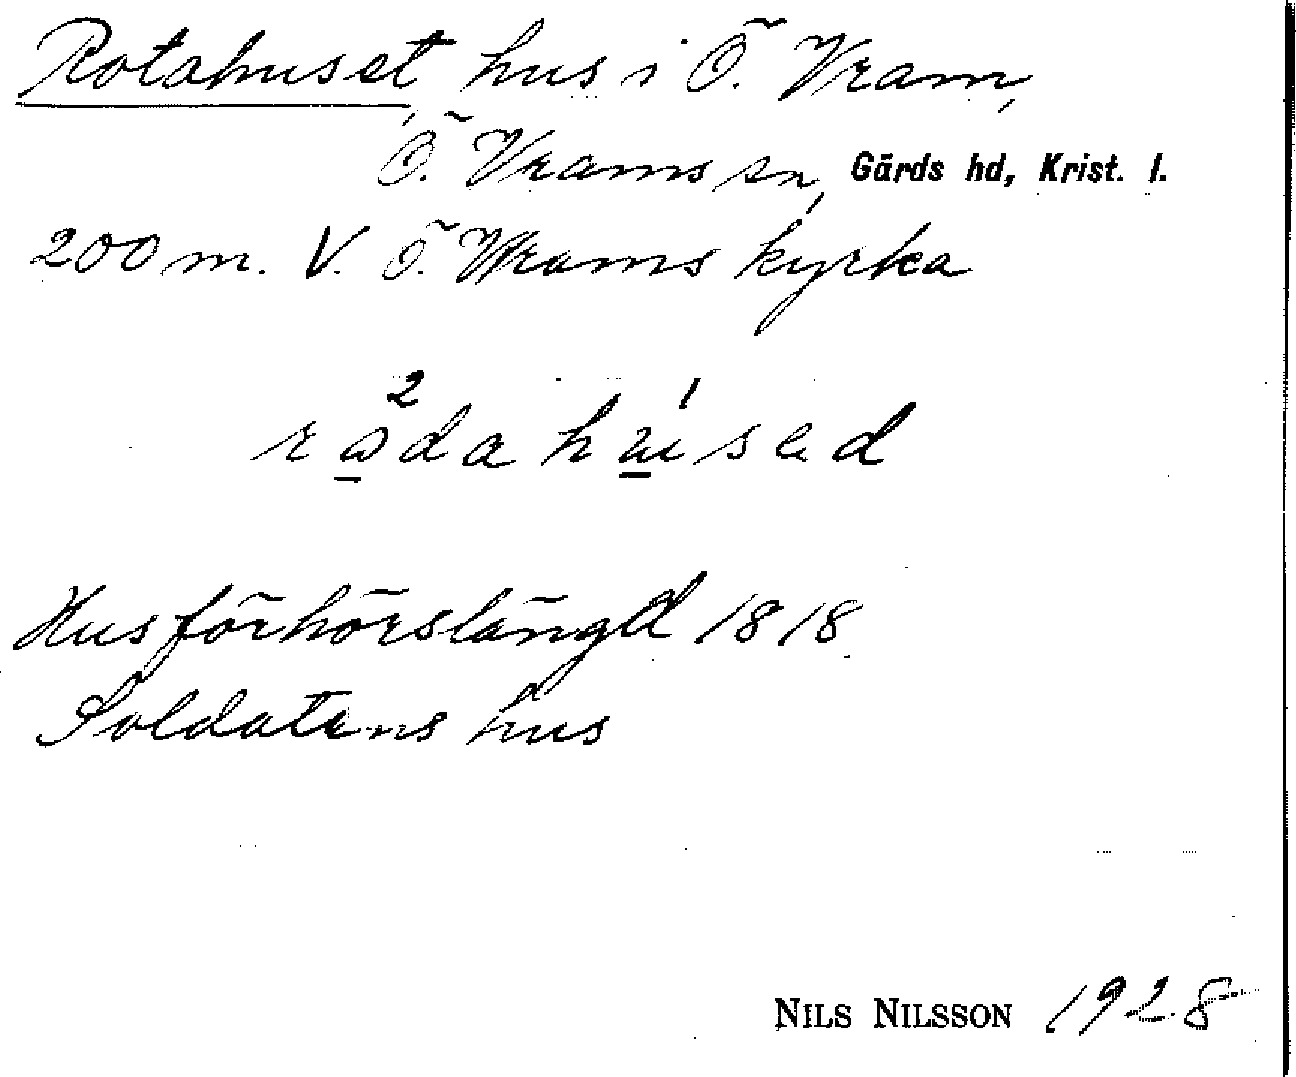 Rotahuset, hus i Ö. Vram,
Ö. Vrams sn, Gärds hd, Krist. l.
200 m. V. Ö. Vrams kyrka
2 1
rådahused
Husförhörslängd 1818
Soldatens hus
NILS NILSSON 1928